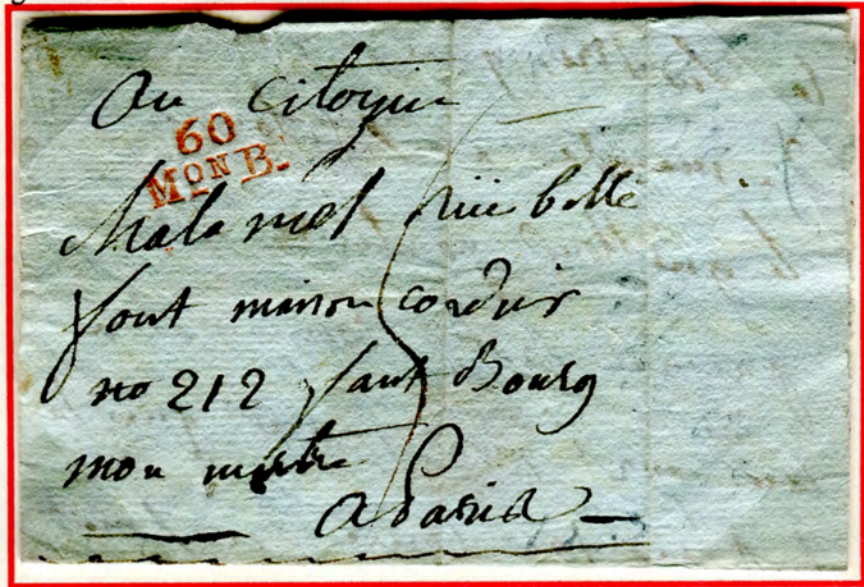 Au citoyin
60
MON B.
Malamet rüe belle
font maison cordier
no 212 faut Bourg
mon martre
a Paris